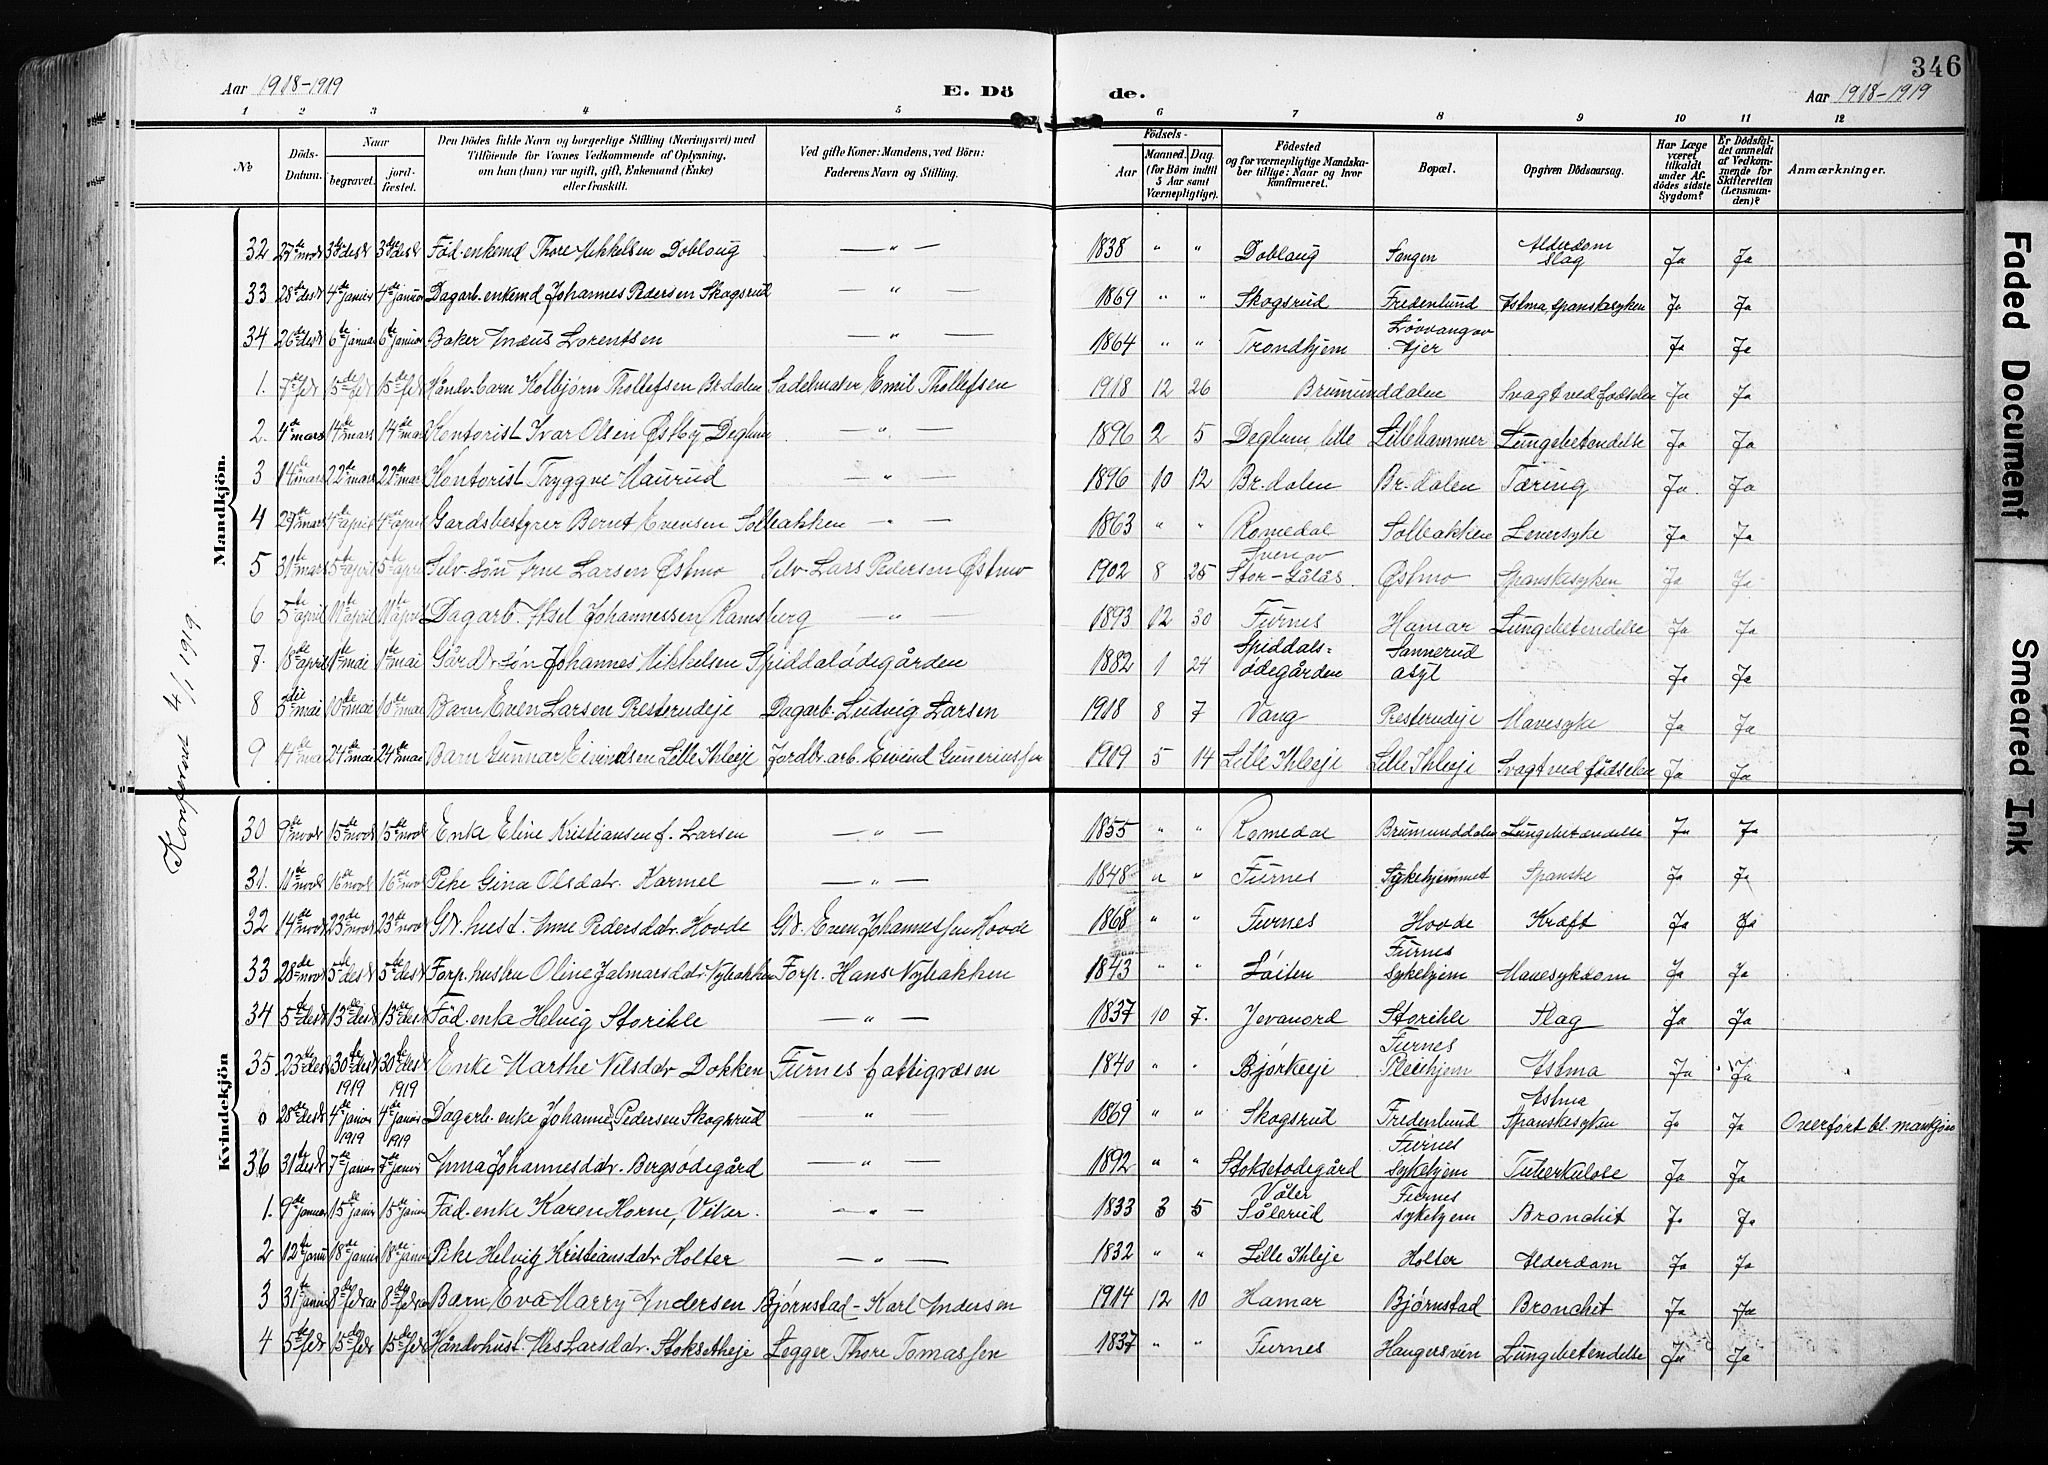 346
Aar 1918-1919
E. Dö
de.
Aar 1918-1919
1 2 3 4 5 6 7 8 9 10 11 12
No
Döds-Datum.
Naar
begravet.
jord-fæstet.
Den Dödes fulde Navn og borgerlige Stilling (Næringsvei) med
Tilföiende for Voxnes Vedkommende af Oplysning,
om han (hun) var ugift, gift, Enkemand (Enke)
eller fraskilt.
Ved gifte Koner: Mandens, ved Börn:
Faderens Navn og Stilling.
Födsels-
Aar
Maaned. Dag.
(for Börn indtil
5 Aar samt
Værnepligtige).
Födested
og for værnepligtige Mandska-
ber tillige: Naar og hvor
konfirmeret.
Bopæl.
Opgiven Dödsaarsag.
Har Læge
været
tilkaldt
under Af-
dödes sidste
Sygdom?
Er Dödsfal-
det anmeldt
af Vedkom-
mende for
Skifteretten
(Lensman-
den)?
Anmærkninger.
Mandkjön.
32 27de novb 3de desb 3de desb Föd. enkemd Thore Mikkelsen Dobloug — " — 1838 " " Dobloug Fangen Alderdom Slag Ja Ja
33 28de desb 4de januar 4de januar Dagarb. enkemd Johannes Pedersen Skogsrud — " — 1869 " " Skogsrud Fredenlund Astma, spanskesyken Ja Ja
34 26de desb 6te januar 6te januar Baker Lorentsen — " — 1864 " " Trondhjem Ja Ja
1. 7de feb 15de feb 15de feb Håndv. barn Kolbjørn Thollefsen Br.dalen Sadelmaker Emil Thollefsen 1918 12 26 Brumunddalen Svagt ved fødselen Ja Ja
2. 4de mars 14de mars 14de mars Kontorist Ivar Olsen Østby Deglum — " — 1896 2 5 Deglum, lille Lillehammer Lungebetendelse Ja Ja
3 14de mars 22de mars 22de mars Kontorist Tryggve Maurud — " — 1896 10 12 Br.dalen Br.dalen Tæring Ja Ja
4 27de mars 4de april 4de april Gardsbestyrer Bernt Evensen Solbakken — " — 1863 " " Romedal Solbakken Leversyke Ja Ja
5 31te mars 5te april 5te april Selv. søn Arne Larsen Østmo Selv. Lars Pedersen Østmo 1902 8 25 Sven av Stor-Gålås. Østmo Spanskesyken Ja Ja
6 5te april 11te april 11te april Dagarb. Aksel Johannessen Ramsberg — " — 1893 12 30 Furnes Hamar Lungebetendelse Ja Ja
7. 18de april 1te mai 1te mai Gårdb. søn Johannes Mikkelsen Spiddalødegården 1882 1 24 Spiddals=ødegården Sannerud asyl Ja Ja
8 5te mai 10de mai 10de mai Barn Even Larsen Presterudeje Dagarb. Ludvig Larsen 1918 8 7 Vang Presterudeje Mavesyke Ja Ja
9 14de mai 24de mai 24de mai Barn Gunnar Eivindsen Lille Ihleeje Jordbr. arb. Eivind Guneriussen 1919 5 14 Lille Ihleeje Lille Ihleeje Svagt ved fødselen Ja Ja
Konfereret 4/1 1919.
Kvindekjön
30 9de novb 15de novb 15de novb Enke Eline Kristiansen f. Larsen — " — 1855 " " Romedal Brumunddalen Lungebetendelse Ja Ja
31. 11te novb 16de novb 16de novb Pike Gina Olsdatr. Karmel — " — 1848 " " Furnes Sykehjemmet Spanske Ja Ja
32 14de novb 23de novb 23de novb Gb. hust. Anne Pedersdatr. Hovde Gb. Even Johannessen Hovde 1868 " " Furnes Hovde Kræft Ja Ja
33 28de novb 5te desb 5te desb Forp. hustru Oline Jalmarsdatr Nybakken Forp. Hans Nybakken 1843 " " Løiten Furnes sykehjem Mavesykdom Ja Ja
34 5te desb 13de desb 13de desb Föd. enke Helvig Storihle — " — 1837 10 7. Jevanord Storihle Slag Ja Ja
35 23de desb 30te desb 30te desb Enke Marthe Nilsdatr Dokken Furnes fattigvæsen 1840 " " Bjørkeeje Furnes Pleiehjem Astma Ja Ja
0 28de desb 1919 4de januar 1919 4de januar Dagarb. enke Johannes Pedersen Skogsrud — " — 1869 " " Skogsrud Fredenlund Astma Spanskesyken Ja Ja Overført bl. mankjøn
36 31te desb 1919 7de januar 1919 7de januar Anna Johannesdatr. Bergsødegård — " — 1892 " " Stoksetødegård Furnes sykehjem Tuberkulose Ja Ja
1. 9de januar 15de januar 15de januar Föd. enke Karen Horne, Viker. — " — 1833 3 5 Våler Sålerud Furnes sykehjem Bronchit Ja Ja
2 12te januar 18de januar 18de januar Pike Helvig Kristiansdatr Holter — " — 1832 " " Lille Ihleje Holter Alderdom Ja Ja
3 31te januar 8de februar 8de februar Barn Eva Marry Andersen Bjørnstad - Karl Andersen 1914 12 10 Hamar Bjørnstad Bronchit Ja Ja
4 5te feb 15de feb 15de feb Håndv. hust. Larsdatr. Stoksetheje Legger Thore Tomassen 1837 " " Furnes Haugersveen Lungebetendelse Ja Ja
Faded Document
Smeared Ink